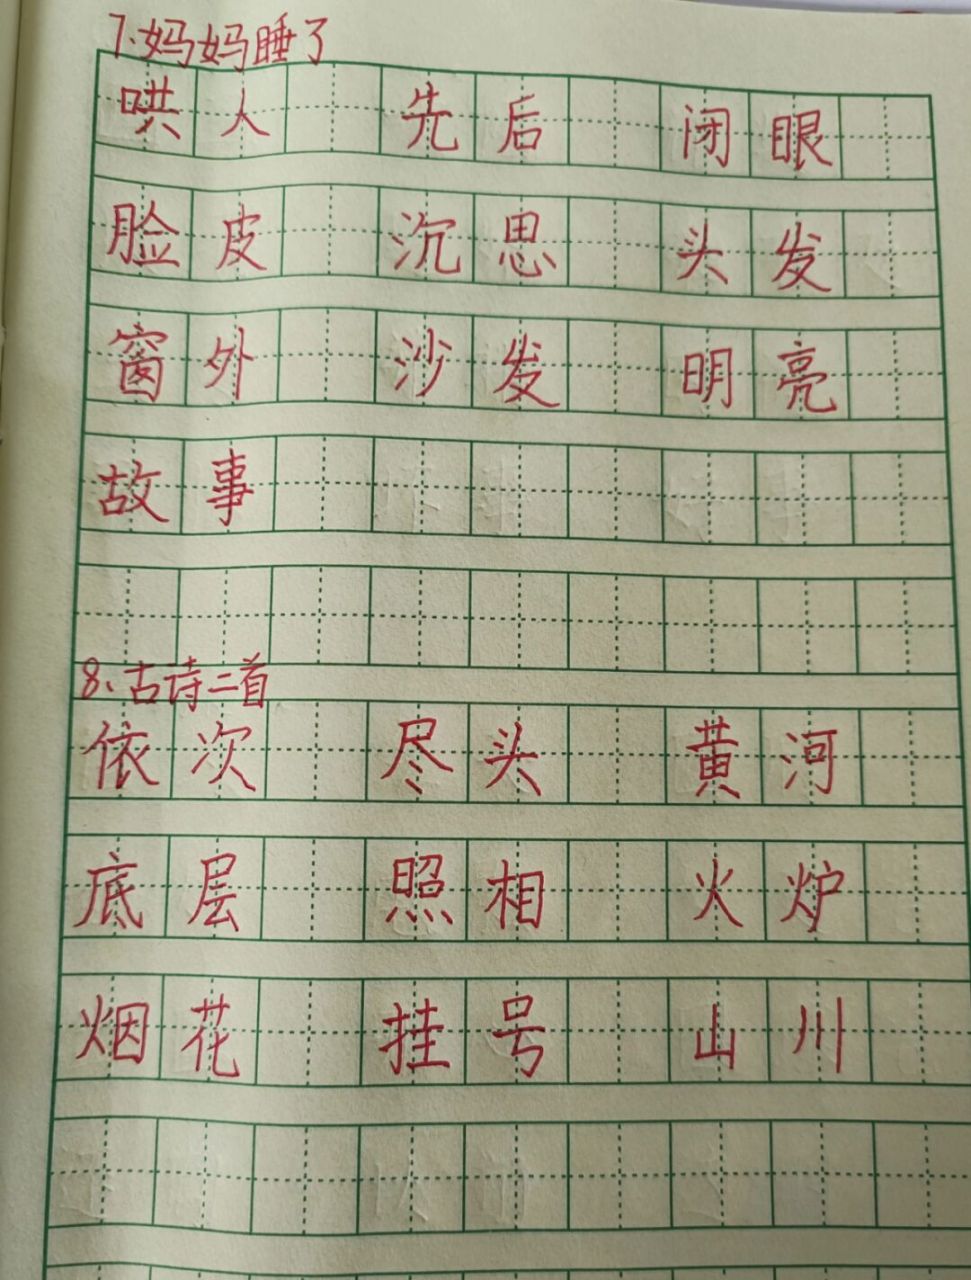 7.妈妈睡了
哄人 先后 闭眼
脸皮 沉思 头发
窗外 沙发 明亮
故事
8、古诗二首
依次 尽头 黄河
底层 照相 火炉
烟花 挂号 山川